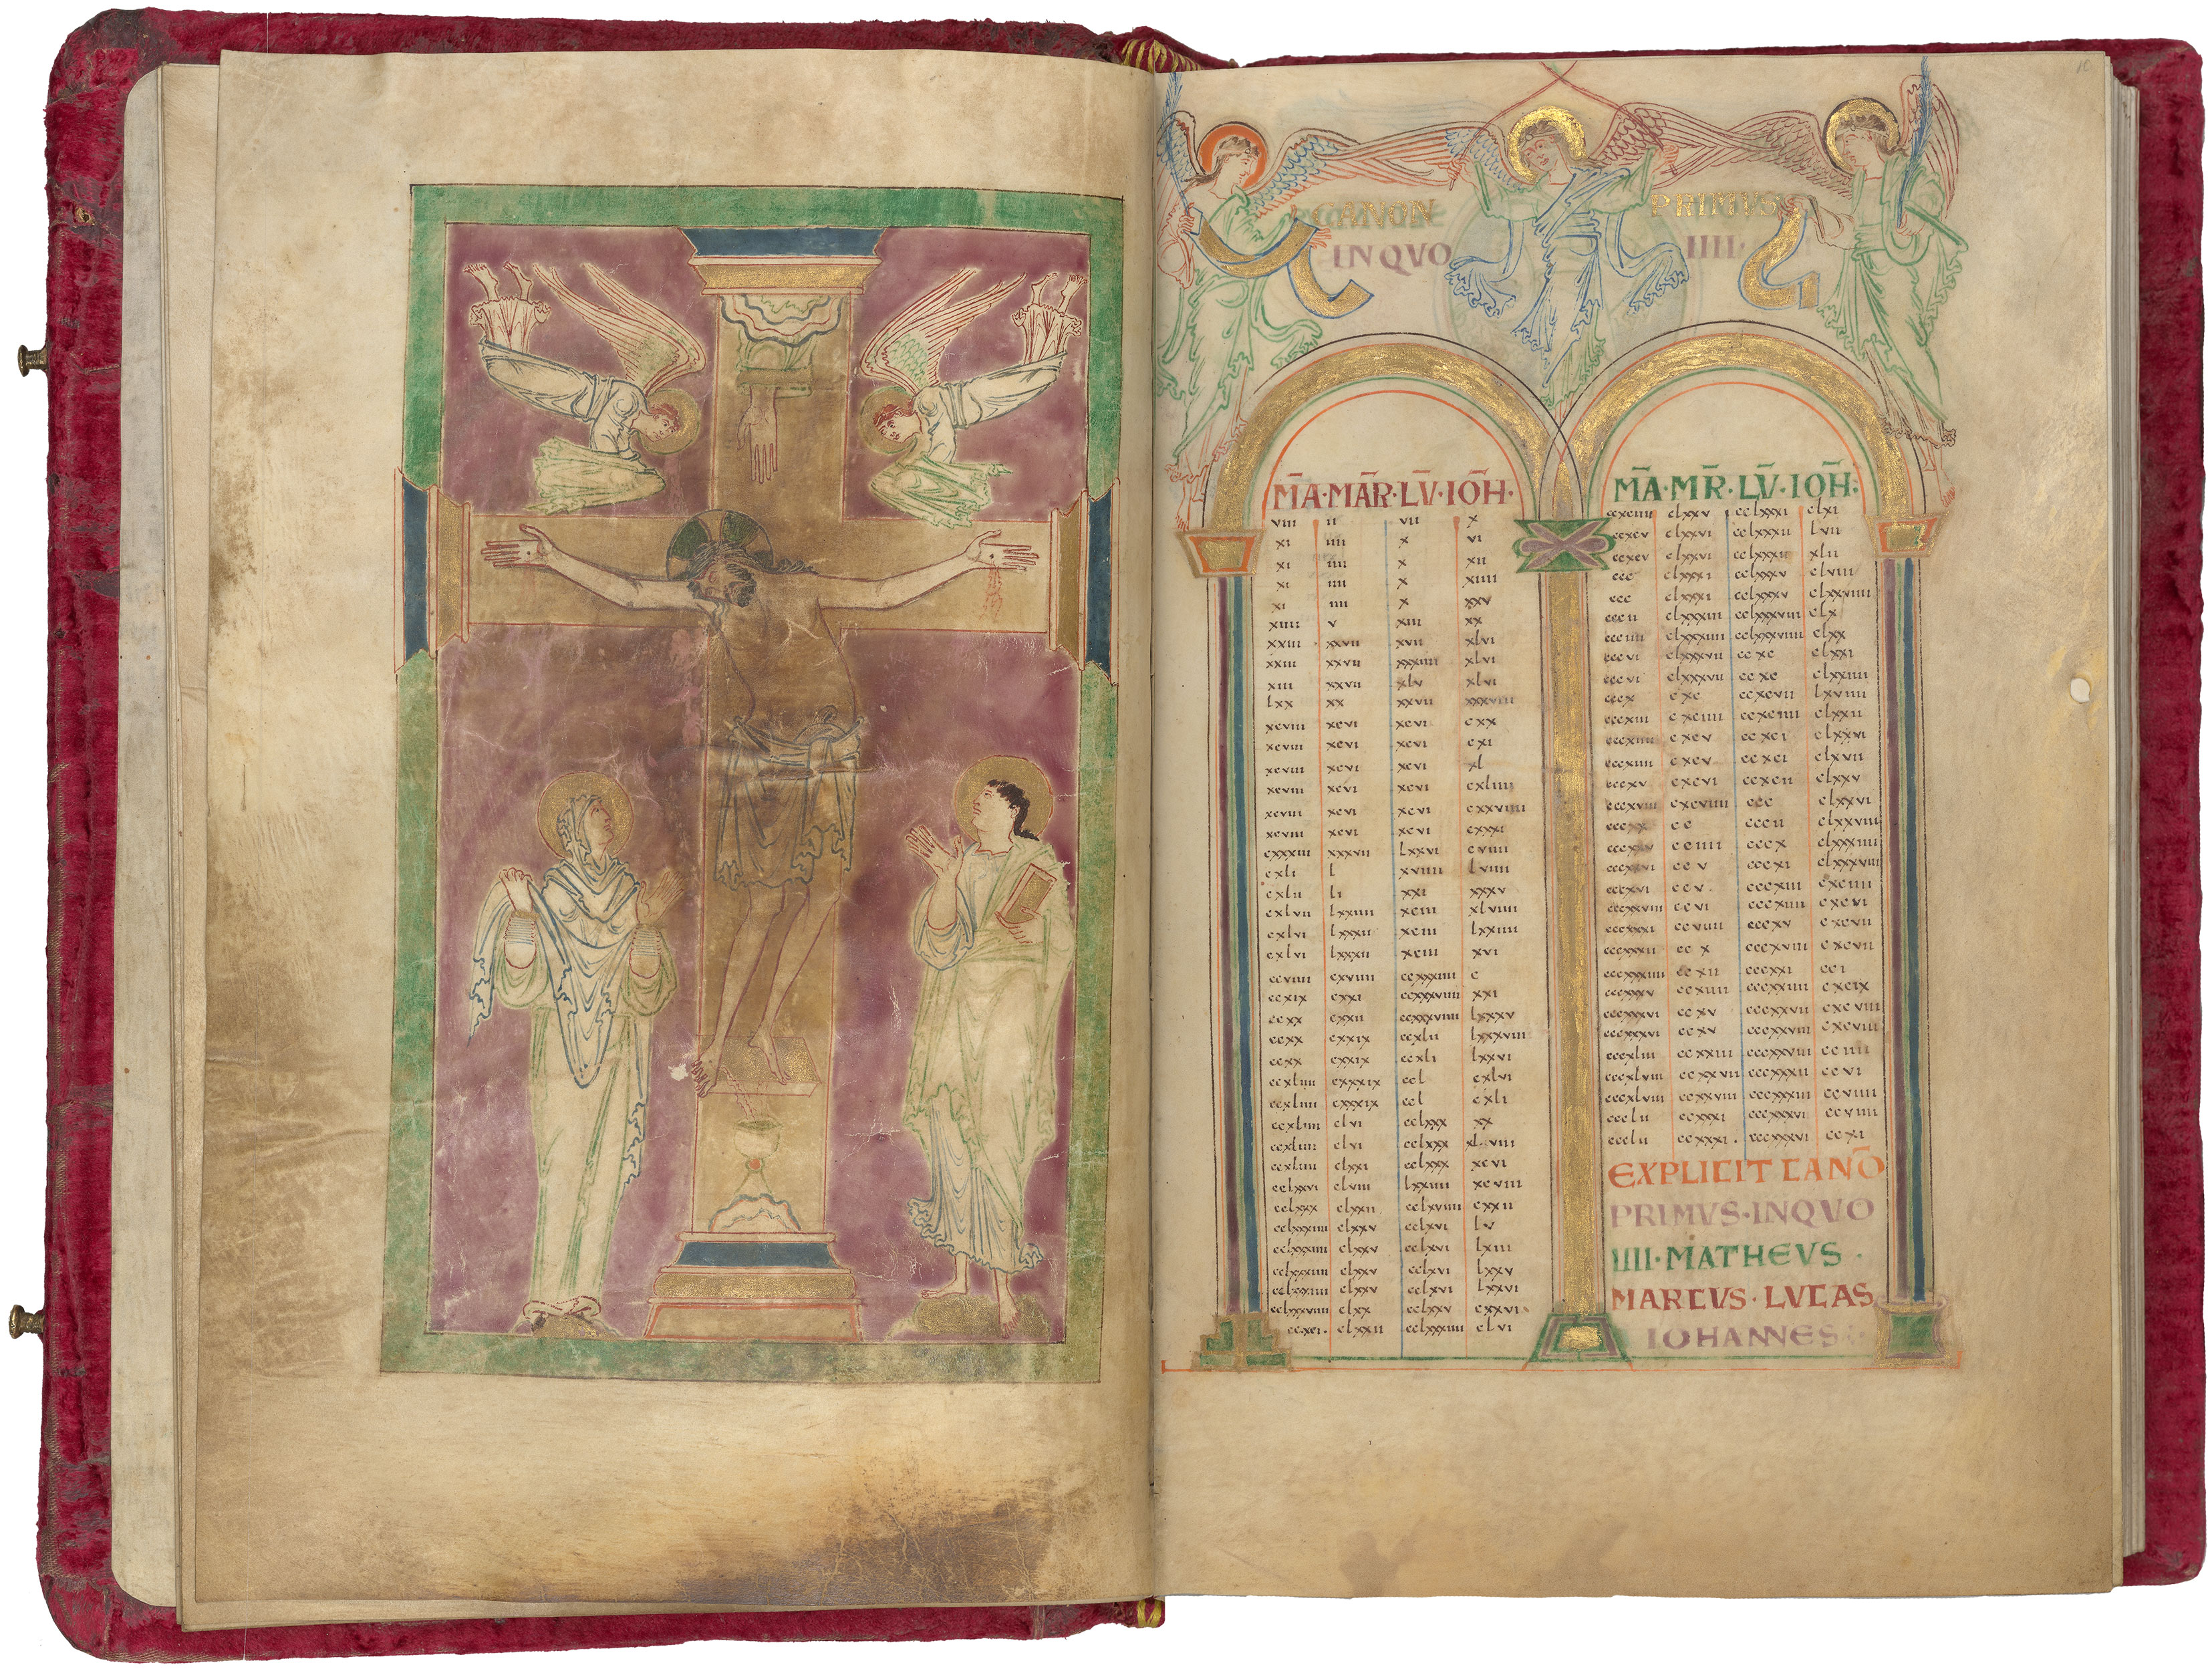 10
CANON PRIMVS
INQVO IIII.
M̄A·MĀR·LV̄·IOH̄·
viii ii vii x
xi iiii x vi
xi iiii x xii
xi iiii x xiiii
xi iiii x xxv
xiiii v xiii xx
xxiii xxvii xvii xlvi
xxiii xxvii xxxiiii xlvi
xiii xxvii xlv xlvi
lxx xx xxvii xxxviii
xcviii xcvi xcvi cxx
xcviii xcvi xcvi cxi
xcviii xcvi xcvi xl
xcviii xcvi xcvi cxliiii
xcviii xcvi xcvi cxxviiii
xcviii xcvi xcvi cxxxi
cxxxiii xxxvii lxxvi cviiii
cxli l xviiii lviiii
cxlii li xxi xxxv
cxlvii lxxiiii xciii xlviiii
cxlvi lxxxii xciii lxxiiii
cxlvi lxxxii xciii xvi
ccviiii cxviiii ccxxxiiii c
ccxix cxxi ccxxxviiii xxi
ccxx cxxii ccxxxviiii lxxxv
ccxx cxxix ccxlii lxxxviii
ccxx cxxix ccxli lxxvi
ccxliiii cxxxix ccl cxlvi
ccxliiii cxxxix ccl cxli
ccxliiii clvi cclxxx xx
ccxliiii clvi cclxxx xlviii
ccxliiii clxxi cclxxx xcvi
cclxxvi clviii lxxiiii xcviii
cclxxx clxxii cclxviiii cxxii
cclxxxiiii clxxv cclxvi lv
cclxxxiiii clxxv cclxvi lxiii
cclxxxiiii clxxv cclxvi lxxv
cclxxxiiii clxxv cclxvi lxxvi
cclxxxviiii clxx cclxxv cxxvi
ccxci. clxxii cclxxxiiii clvi
M̄A·MR̄·LV̄·IOH̄:
ccxciiii clxxv cclxxxi clxi
ccxcv clxxvi cclxxxii lvii
ccxcv clxxvi cclxxxii xlii
ccc clxxxi cclxxxv clviii
ccc clxxxi cclxxxv clxxviiii
cccii clxxxiii cclxxxviii clx
ccciiii clxxxiiii cclxxxviiii clxx
cccvi clxxxvii ccxc clxxi
cccvi clxxxvii ccxc clxxiiii
cccx cxc ccxcvii lxviiii
cccxiii cxciiii ccxciiii clxxii
cccxiiii cxcv ccxci clxxvi
cccxiiii cxcv ccxci clxvii
cccxv cxcvi ccxcii clxxv
cccxviii cxcviiii ccc clxxvi
cccxx cc cccii clxxviii
cccxxv cciiii cccx clxxxiiii
cccxxvi ccv cccxi clxxxviii
cccxxvi ccv. cccxiii cxciiii
cccxxviii ccvi cccxiiii cxcvi
cccxxxi ccviiii cccxv cxcvii
cccxxxii ccx cccxviii cxcvii
cccxxxiiii ccxii cccxxi cci
cccxxxv ccxiiii cccxxiiii cxcix
cccxxxvi ccxv cccxxvii cxcviii
cccxxxvi ccxv cccxxviii cxcviii
cccxliii ccxxiii cccxxviii cciiii
cccxlviii ccxxvii cccxxxii ccvi
cccxlviii ccxxviii cccxxxiii ccviiii
ccclii ccxxxi cccxxxvi ccviiii
ccclii ccxxxi. cccxxxvi ccxi
EXPLICIT CANŌ
PRIMVS·INQVO
IIII·MATHEVS·
MARCVS·LVCAS
IOHANNES: